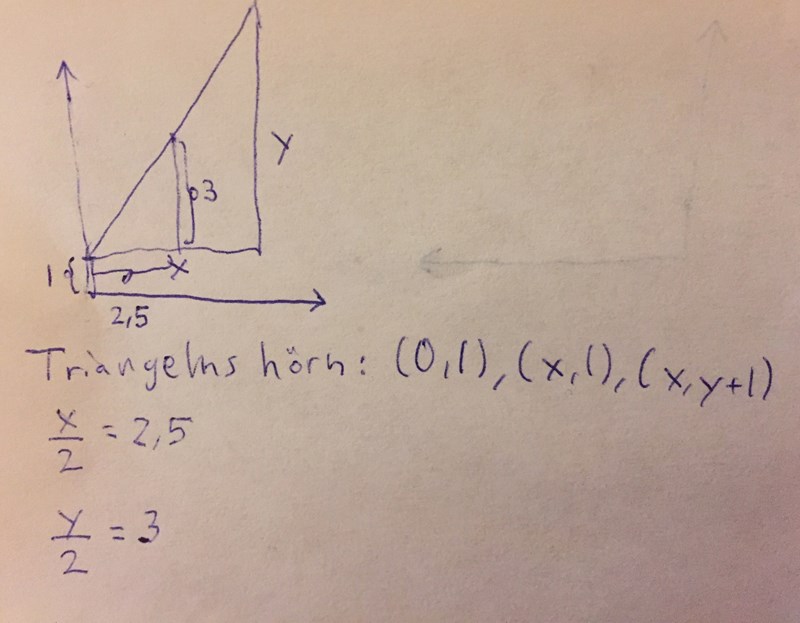 y
3
1{
x
2,5
Triangelns hörn: (0,1), (x,1), (x,y+1)
x/2 = 2,5
y/2 = 3